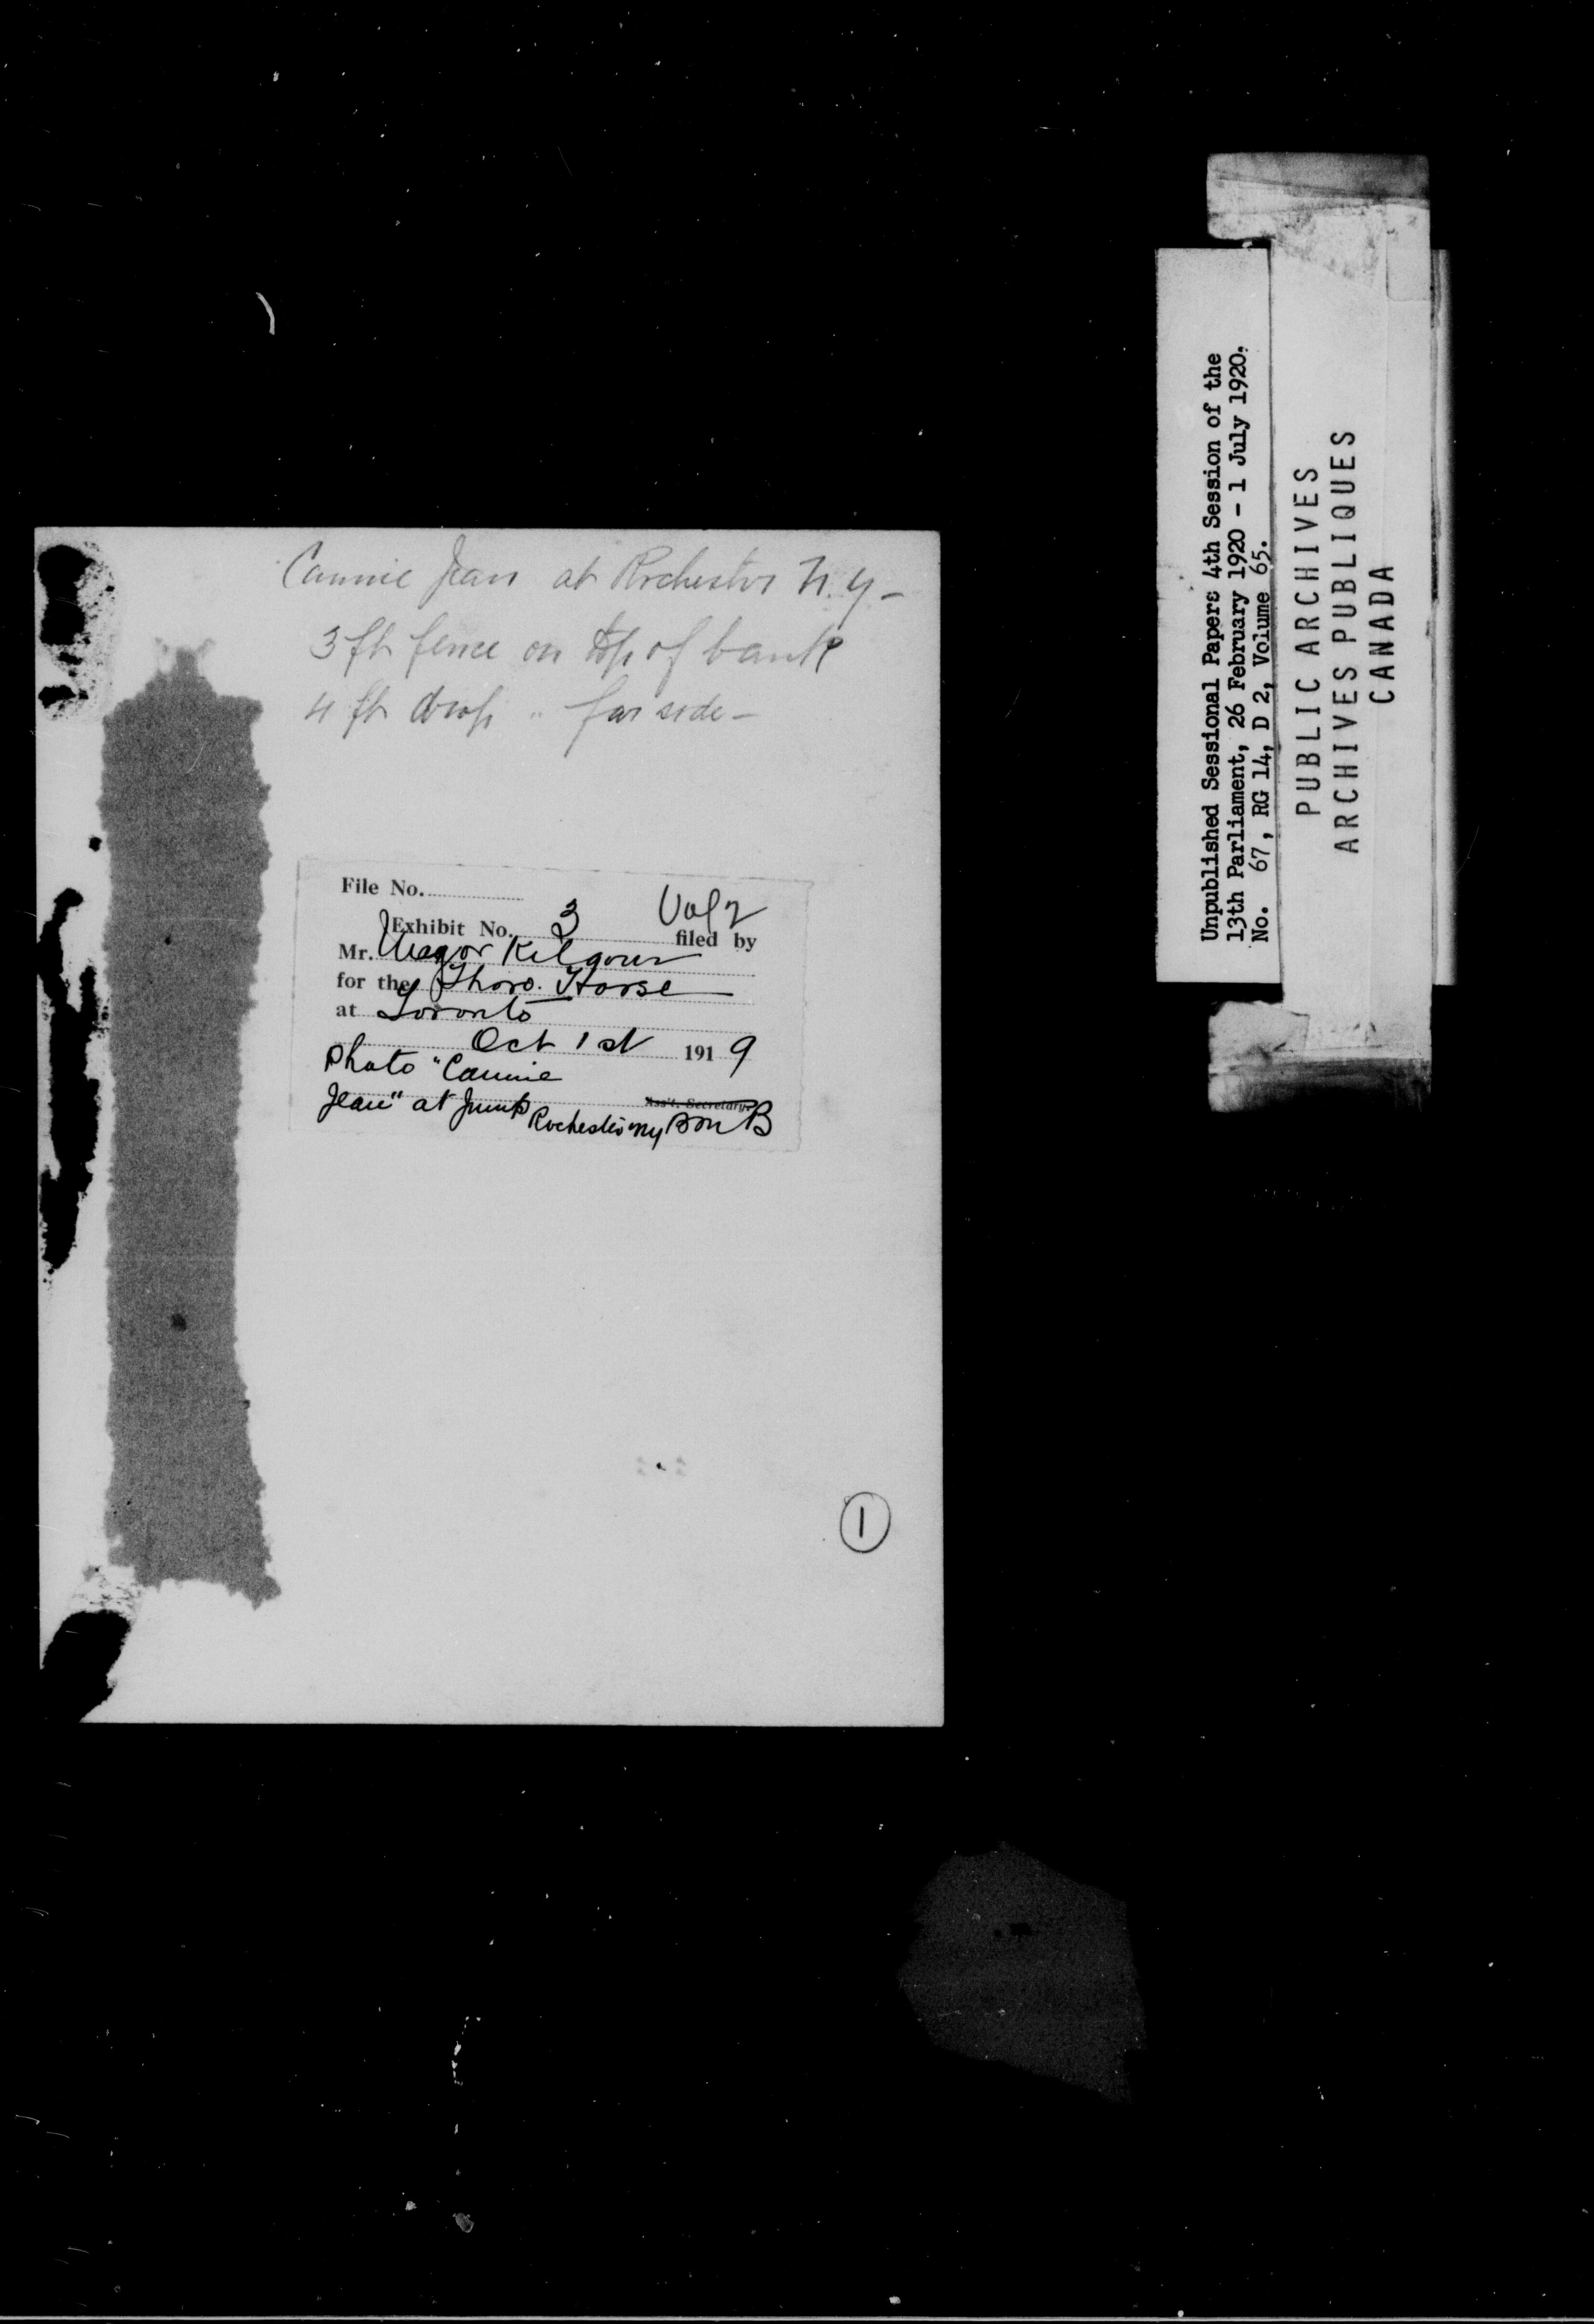 Cannie Jean at Rochester N.Y. –
3 ft fence on top of bank
4 ft drop " far side –
File No.
Exhibit No. 3 Vol 2
filed by
Mr. Major Kilgour
for the Thoro. Horse
at Toronto
Oct 1st 1919
Photo "Cannie
Jean" at Jump
Ass't. Secretary.
Rochester NY
1
Unpublished Sessional Papers 4th Session of the
13th Parliament, 26 February 1920 - 1 July 1920.
No. 67, RG 14, D 2, Volume 65.
PUBLIC ARCHIVES
ARCHIVES PUBLIQUES
CANADA